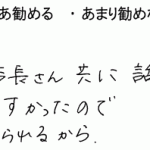 あ勧める ・あまり勧めな
長さん 共に 話
すかったので
られるから.